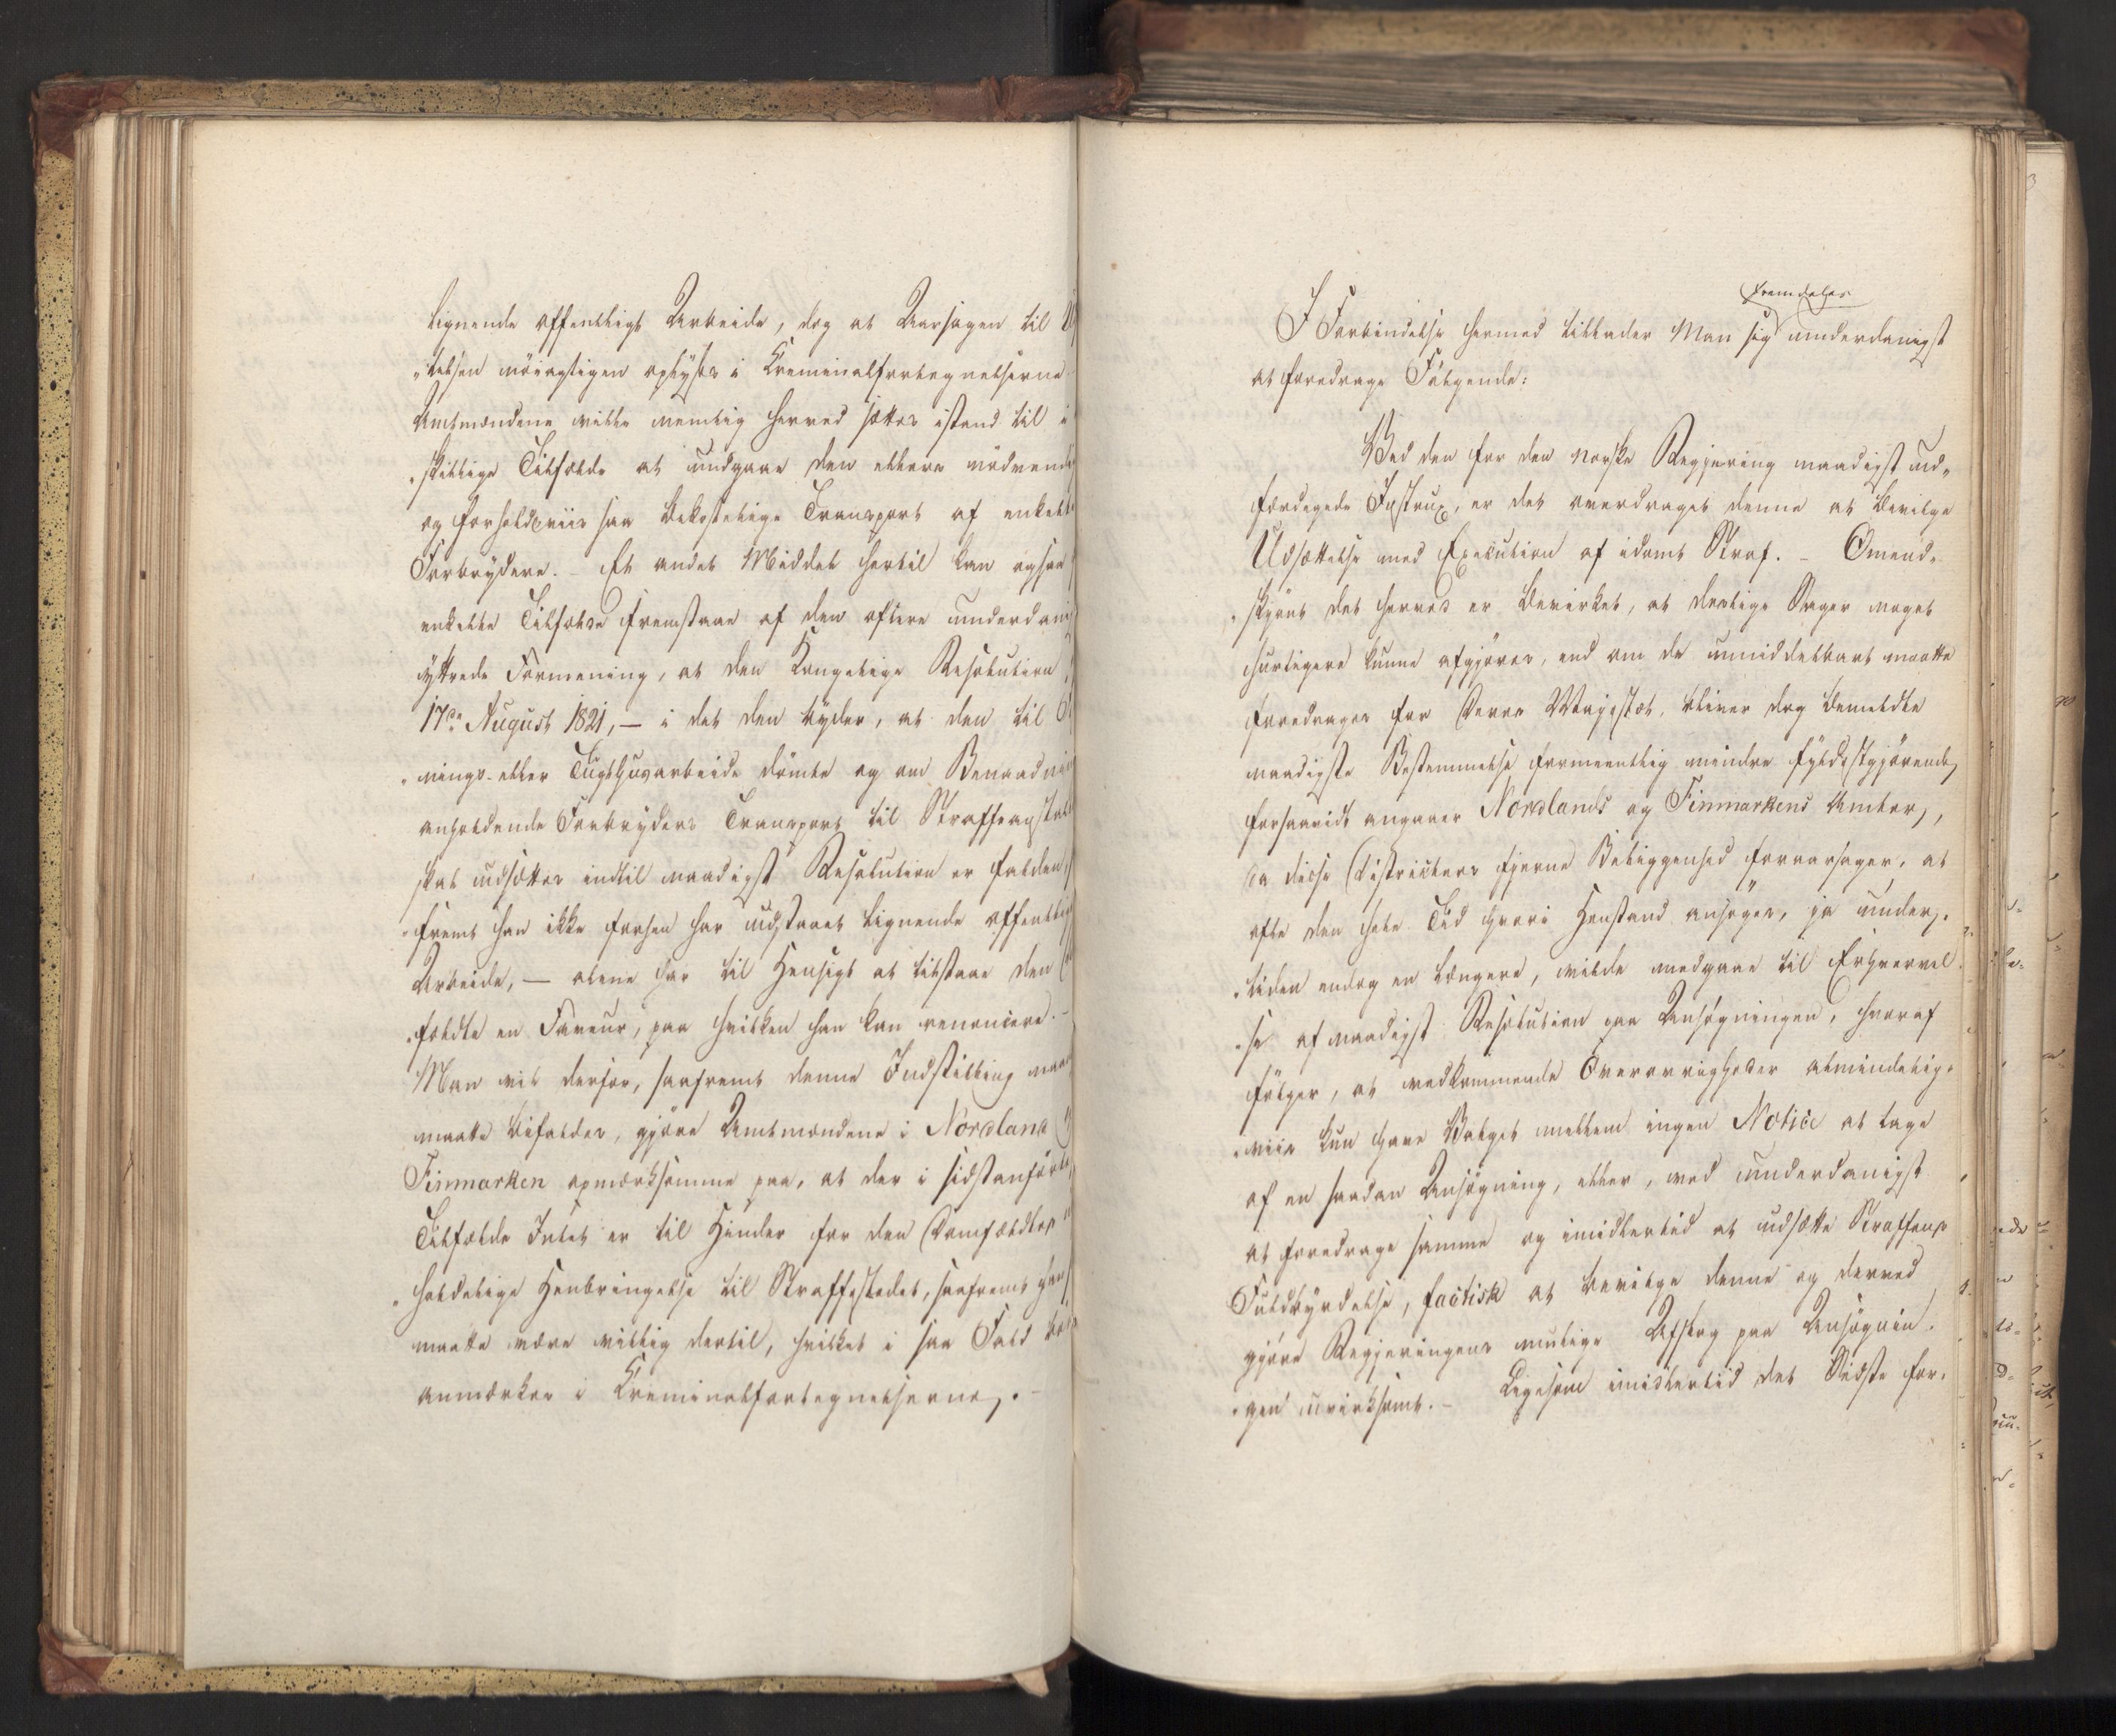 lignende offentligt Arbeide, dog at Aarsagen til U
„telsen nöiagtigen oplyses i Kriminalfortegnelserne
Amtmændene ville nemlig herved sættes istand til i
„skillige Tilfælde at undgaae den ellers nödvend
og forholdsviis saa bekostelige Transport af enkelte
Forbrydere. – Et andet Middel hertil kan ogsaa
enkelte Tilfælde fremstaae af den oftere underdanig
yttrede Formening, at den Kongelige Resolution
17de August 1821, — i det den byder, at den til
„nings- eller Tugthuusarbeide dömte og om Benaadning
anholdende Forbryders Transport til Straffeanstalt
skal udsættes indtil naadigst Resolution er falden,
„fremt han ikke forhen har udstaaet lignende offentligt
Arbeide, — alene har til Hensigt at tilstaae den
„fældte en Faveur, paa hvilken han kan renoncere. –
Man vil derfor, saafremt denne Indstilling naa
maatte bifaldes, gjöre Amtmændene i Nordland
Finmarken opmærksomme paa, at der i sidstanförte
Tilfælde Intet er til Hinder for den Domfældtes
„holdelige Henbringelse til Straffestedet, saafremt han
maatte være villig dertil, hvilket i saa Fald bör
anmærkes i Kriminalfortegnelserne. –
fremdeles
I Forbindelse hermed tillader Man sig underdanigst
at foredrage Fölgende:
Ved den for den norske Regjering naadigst ud„
færdigede Instrux, er det overdraget denne at bevilge
Udsættelse med Execution af idömt Straf. – Omend„
„skjönt det herved er bevirket, at deslige Sager meget
hurtigere kunne afgjöres, end om de umiddelbart maatte
foredrages for Deres Majestæt, bliver dog bemeldte
naadigste Bestemmelse formeentlig mindre fyldestgjörende,
forsaavidt angaaer Nordlands og Finmarkens Amter,
da disse Districters fjerne Beliggenhed foraarsager, at
ofte den hele Tid hvori Henstand ansöges, ja under„
„tiden endog en længere, vilde medgaae til Erhvervel„
„se af naadigst Resolution paa Ansögningen, hvoraf
fölger, at vedkommende Överövrigheder almindelig„
„viis kun have Valget mellem ingen Notice at tage
af en saadan Ansögning, eller, ved underdanigst
at foredrage samme og imidlertid at udsætte Straffens
Fuldbyrdelse, factisk at bevilge denne og derved
gjöre Regjeringens mulige Afslag paa Ansögnin„
„gen uvirksomt. – Ligesom imidlertid det Sidste for„